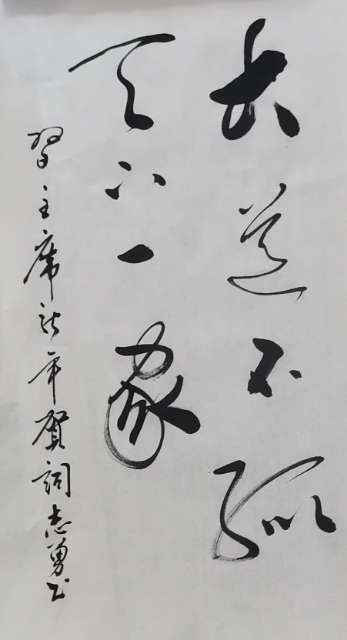 大道不孤
天下一家
習主席新年賀詞志勇书